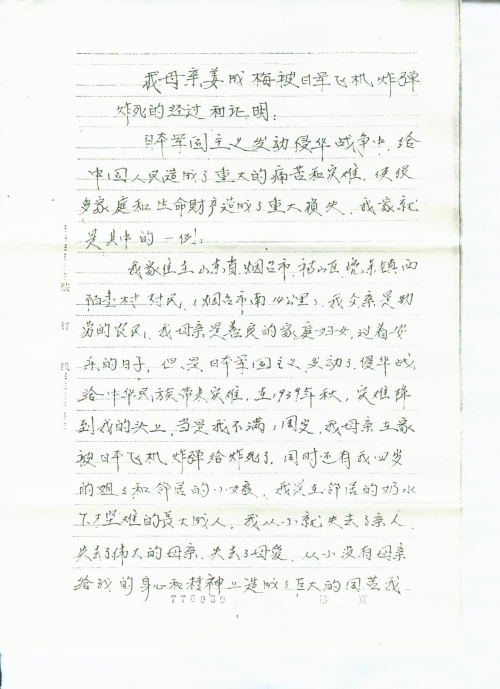 我母亲姜成梅被日军飞机炸弹
炸死的经过和证明:
日本军国主义发动侵华战争中,给
中国人民造成了重大的痛苦和灾难,使很
多家庭和生命财产造成了重大损失,我家就
是其中的一例:
我家住在山东省烟台市福山区镇西
陌堂村村民,(烟台市南14公里)。我父亲是勤
劳的农民,我母亲是善良的家庭妇女,过着安
乐的日子,但是日本军国主义发动了侵华战,
给中华民族带来灾难,在1939年秋,灾难降
到我的头上,当是我不满1周岁,我母亲在家
被日军飞机炸弹给炸死了,同时还有我四岁
的姐子和邻居的小嫚,我是在邻居的奶水
下才坚难的長大成人,我从小就失去了亲人,
失去了伟大的母亲,失去了母爱,从小没有母亲
给我的身心和精神上造成了巨大的困苦我
776939 第 页
装
订
线